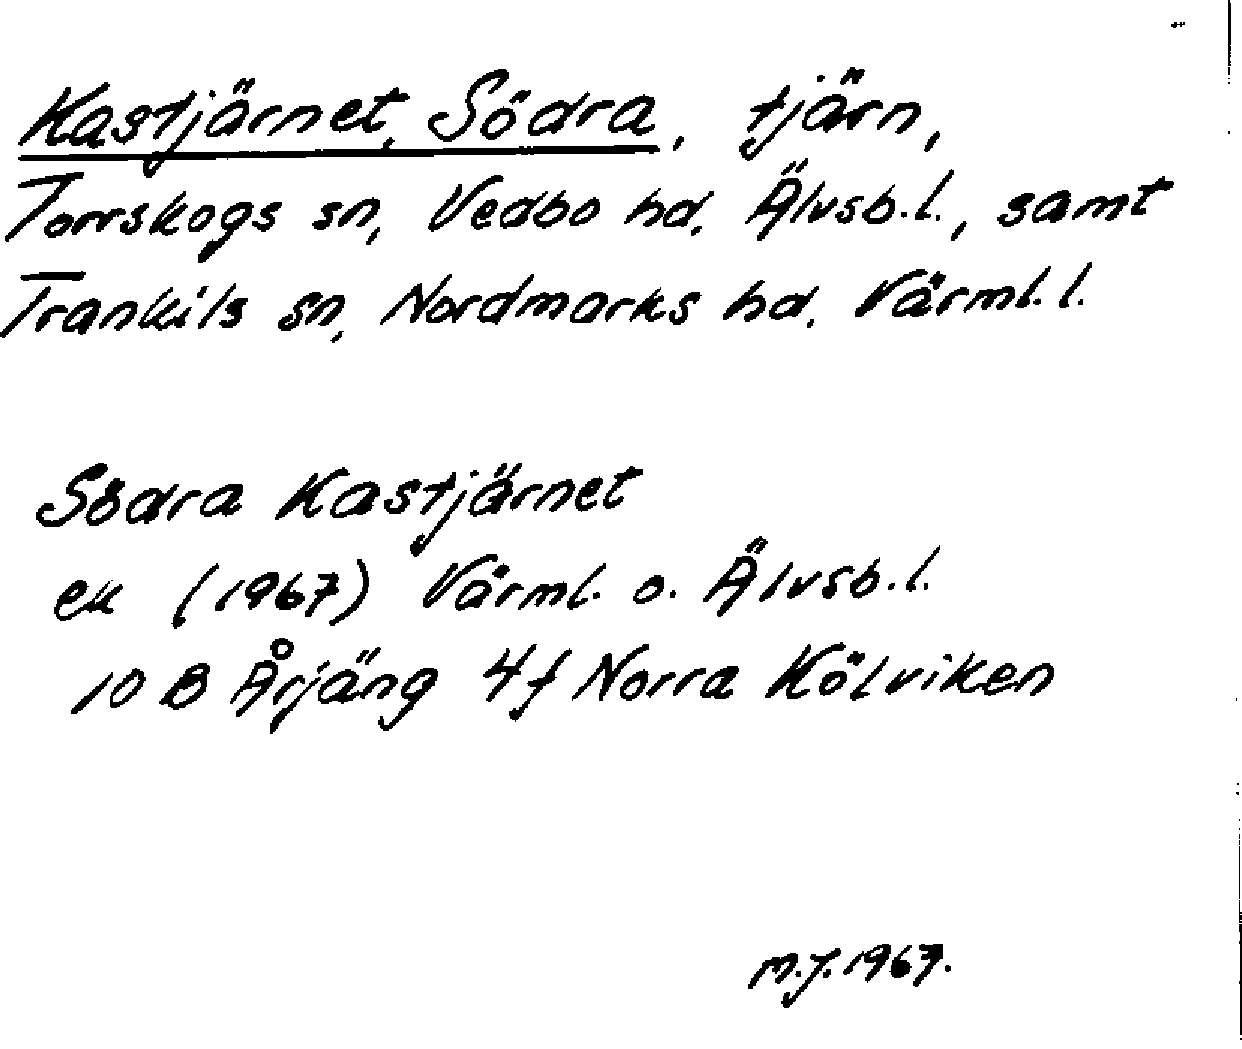 Kastjärnet, Södra, tjärn,
Torrskogs sn, Vedbo hd, Älvsb.l., samt
Trankils sn, Nordmarks hd, Värml.l.
Södra Kastjärnet
ek (1967) Värml. o. Älvsb.l.
10 B Årjäng 4f Norra Kölviken
M.J. 1967.